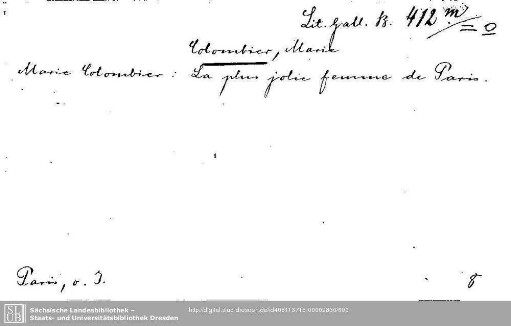 Lit. Gall. B. 412 m
Colombier, Marie
Marie Colombier : La plus jolie femme de Paris.
Paris, o. J. 8
Sächsische Landesbibliothek –
Staats- und Universitätsbibliothek Dresden